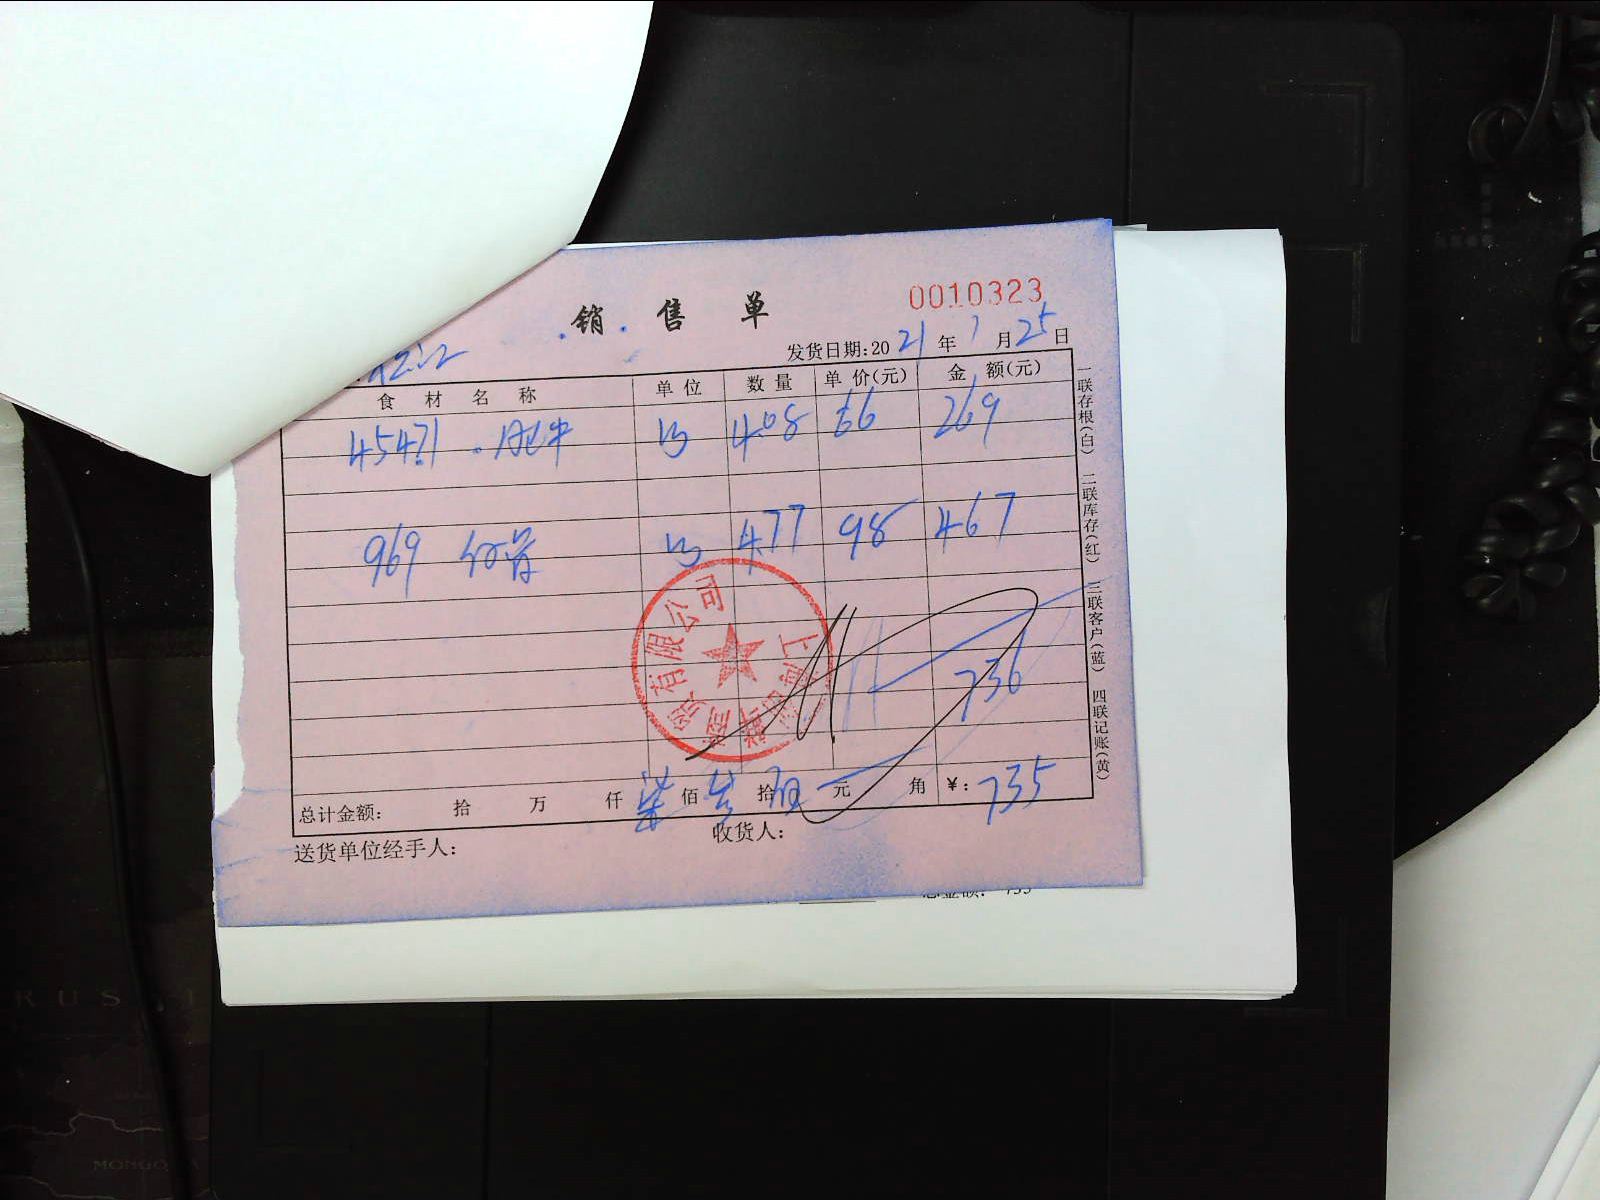 销 售 单
0010323
发货日期:2021年1月25日
食 材 名 称 单 位 数 量 单 价(元) 金 额(元)
45471 .肥牛 4.08 66 269
969 4.77 98 467
736
总计金额: 拾 万 仟 柒 佰 叁 拾 伍 元 角 ¥: 735
送货单位经手人: 收货人:
一联存根(白) 二联库存(红) 三联客户(蓝) 四联记账(黄)
上海 商贸有限公司
总金额: 735
RUS
MONGO